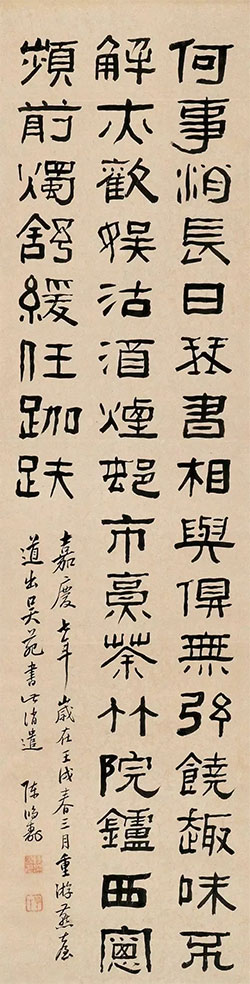 何事消長日琴書相與俱無弦饒趣味不
解亦歡娛沽酒煙邨市烹茶竹院鑪西窗
頻前燭舒緩任跏趺
嘉慶七年歲在壬戌春三月重游燕臺
道出吳苑書此消遣 陳鴻壽